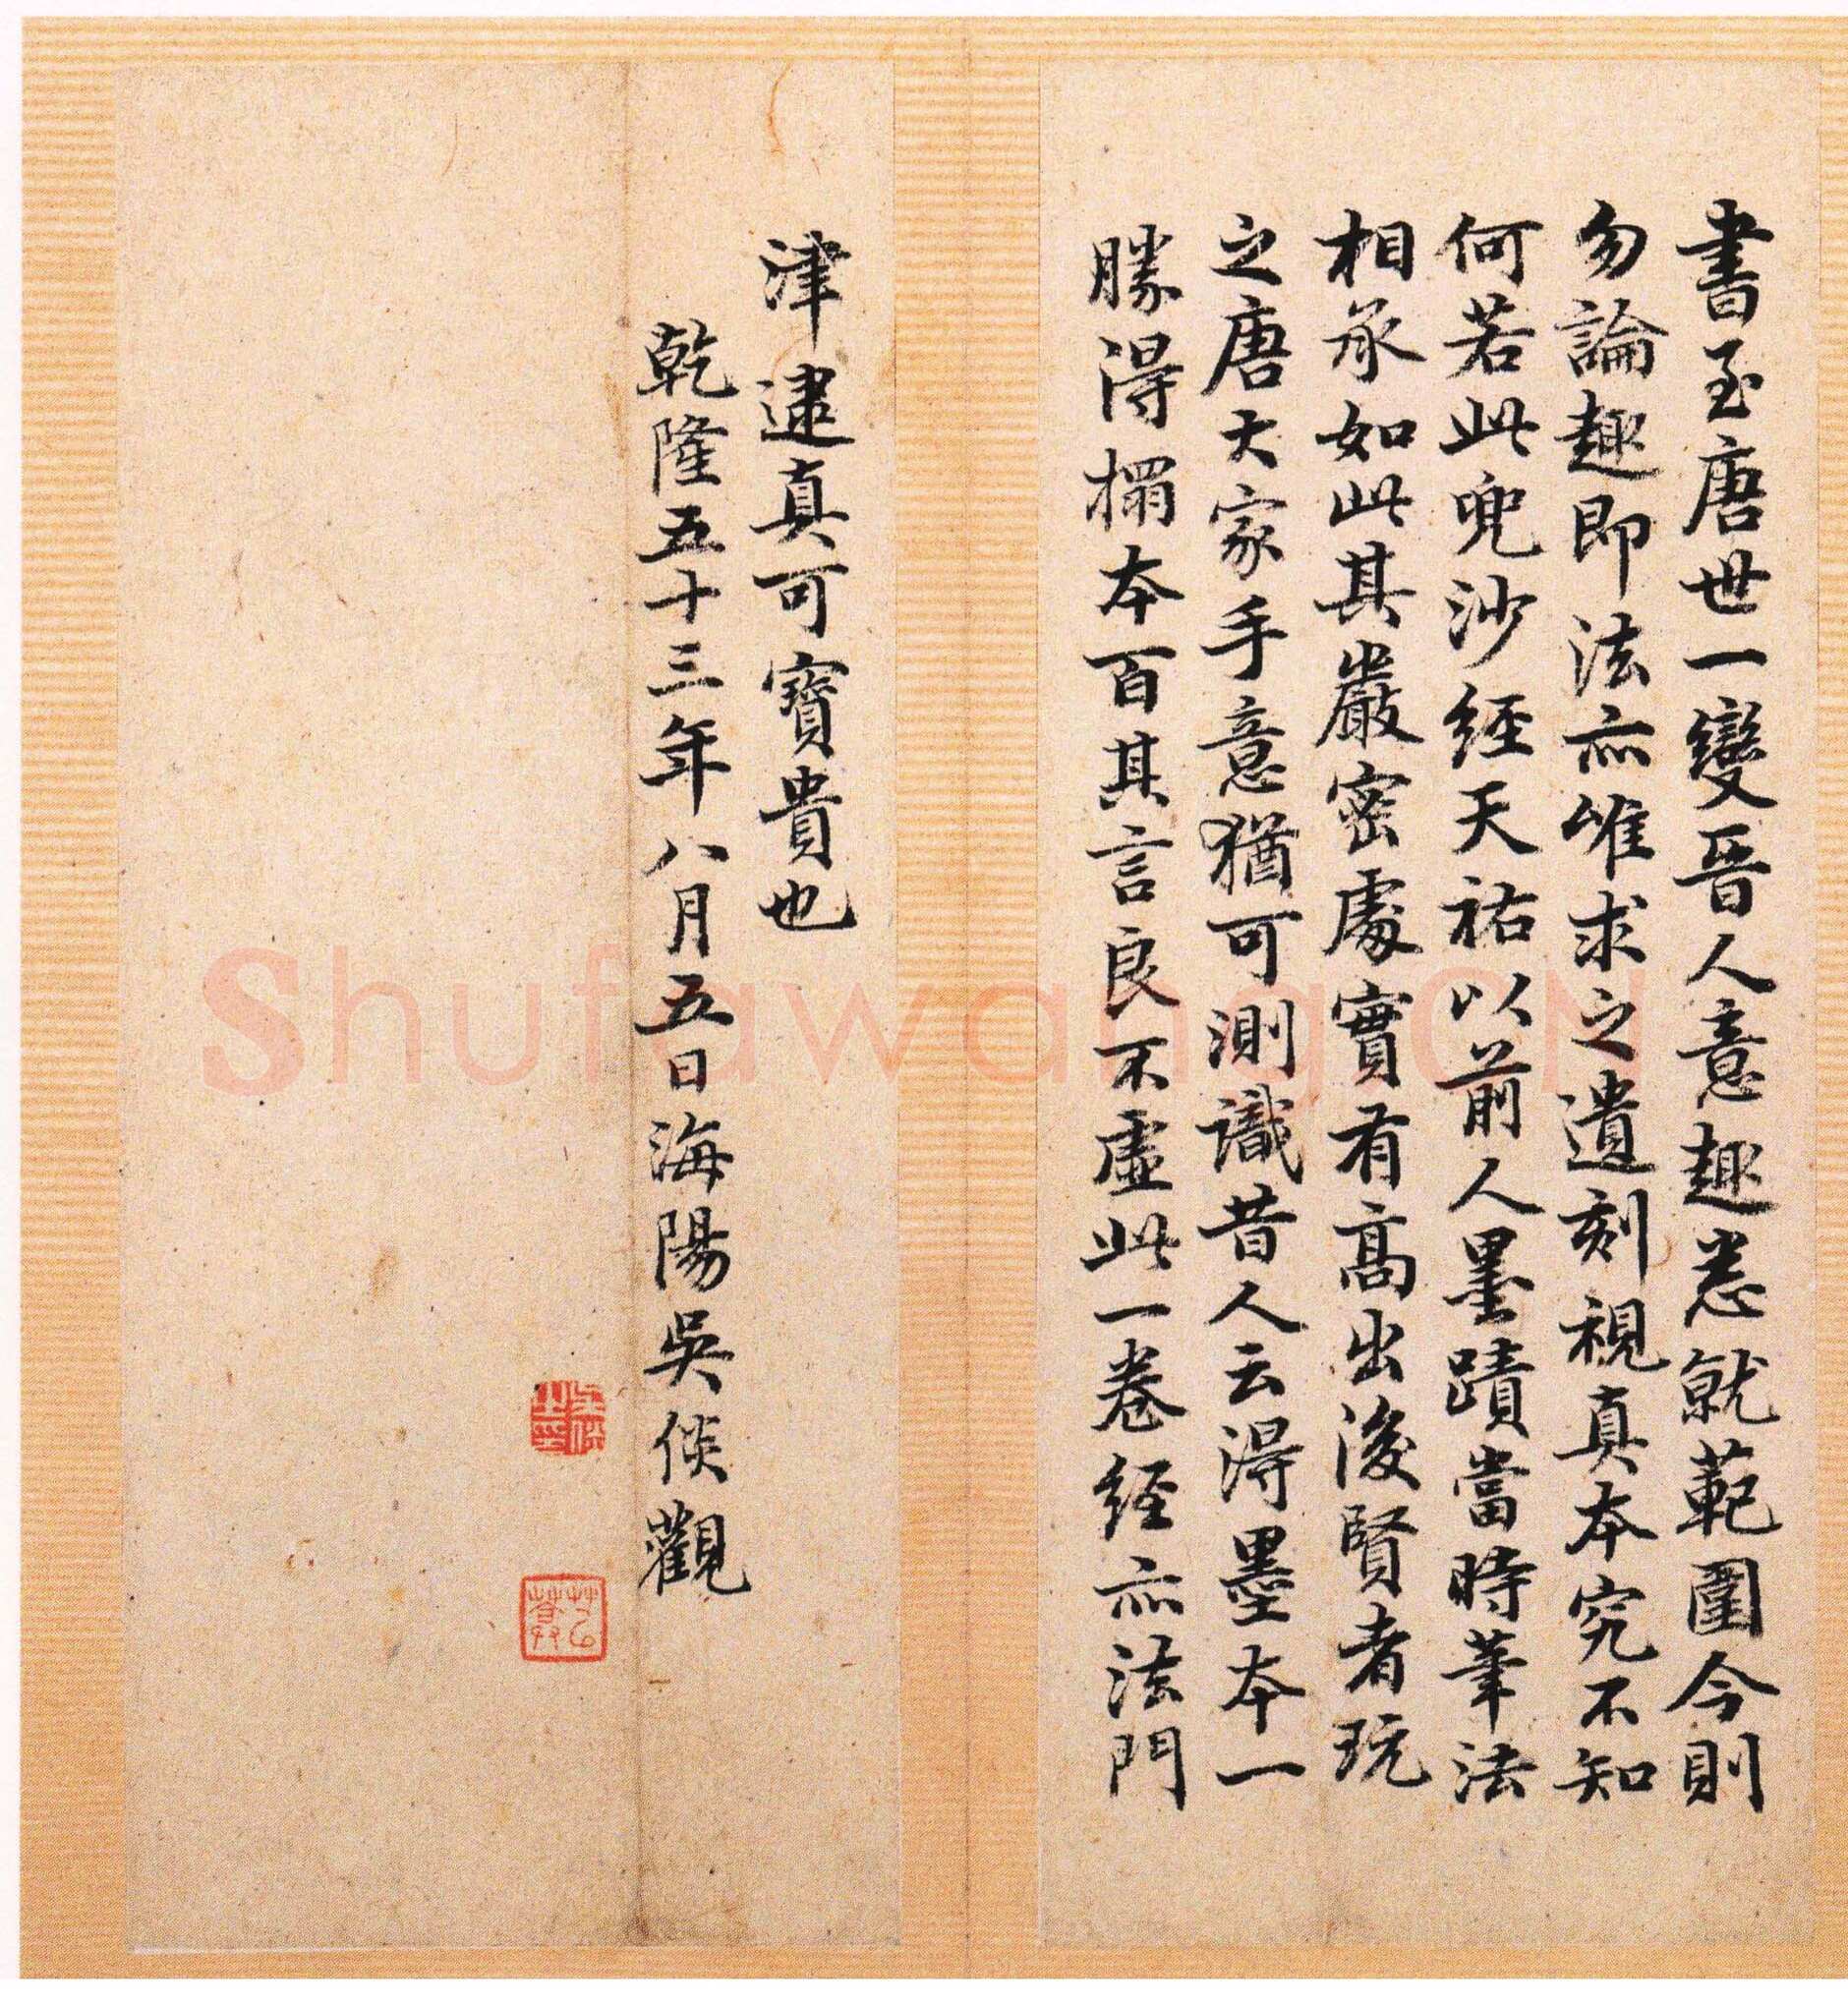 書至唐世一變晉人意趣悉就範圍今則
勿論趣即法亦唯求之遺刻視真本究不知
何若此兜沙經天祐以前人墨蹟當時筆法
相承如此其嚴密處實有高出後賢者玩
之唐大家手意猶可測識昔人云得墨本一
勝得搨本百其言良不虛此一卷經亦法門
津逮真可寶貴也
乾隆五十三年八月五日海陽吳倓觀
ShufawangCN